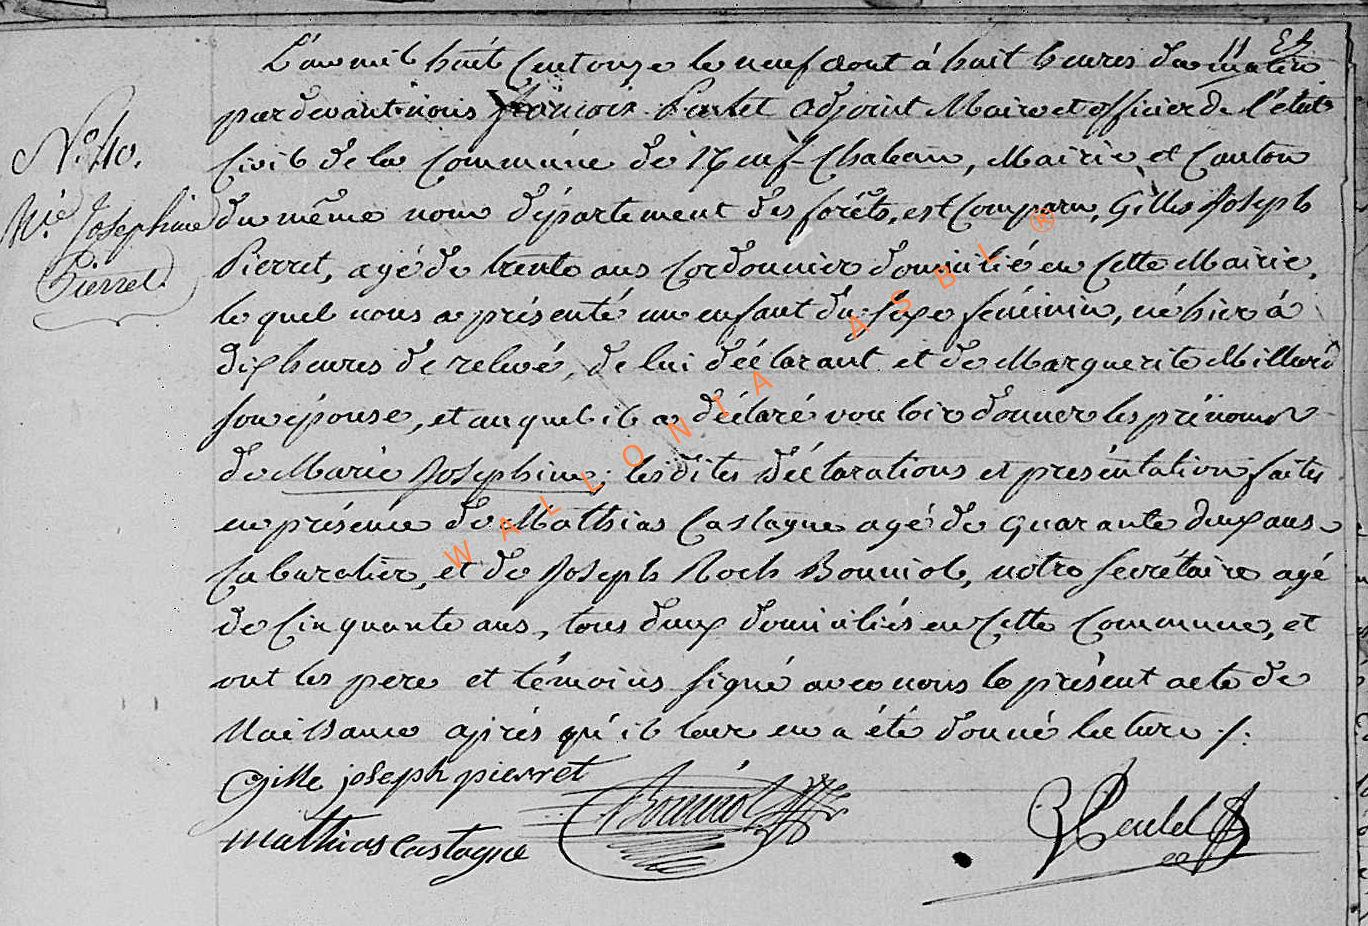 L'an mil huit Cent onze le neuf aout à huit heures du matin
pardevant nous François adjoint Maire et officier de l'état
Civil de la Commune de Neuf-Chateau, Mairie et Canton
du même nom département des forêts, est Comparu, Gilles Joseph
Pierret, agé de trente ans Cordonnier domicilié en Cette Mairie,
le quel nous a présenté un enfant du sexe féminin, né hier à
dix heures de relevé, de lui déclarant et de Marguerite Millard
son épouse, et auquel il a déclaré vouloir donner les prénoms
de Marie Josephine; lesdites déclarations et présentation faites
en présence de Mathias Castagne agé de quarante deux ans
Cabaretier, et de Joseph Roch Bonniol, notre secrétaire agé
de Cinquante ans, tous deux domiciliés en Cette Commune, et
ont les pere et témoins signé avec nous le présent acte de
Naissance après qu'il leur en a été donné lecture ./.
N.° 40.
M.ie Josephine
Pierret.
Gille joseph pierret
Bonniol
mathias Castagne
WALLONIA ASBL ®